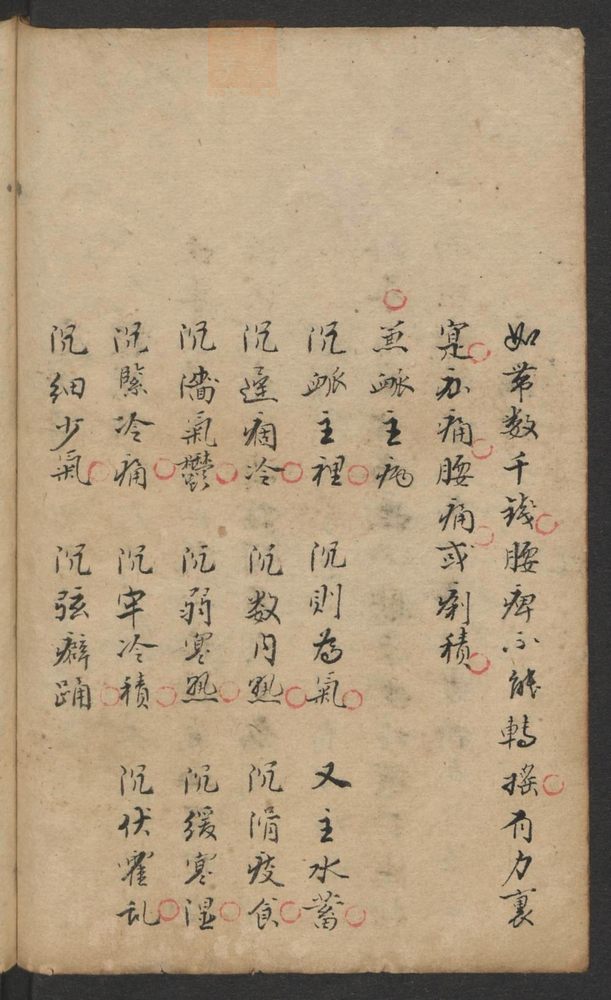 如帯数千錢腰痺不能轉搖有力裏
寔亦痛腰痛或痢積
兼脈主病
沉脈主裡 沉則為氣 又主水蓄
沉遲痼冷 沉数内熱 沉滑痰食
沉濇氣鬱 沉弱寒熱 沉緩寒湿
沉緊冷痛 沉牢冷積 沉伏霍乱
沉細少氣 沉弦癖踊